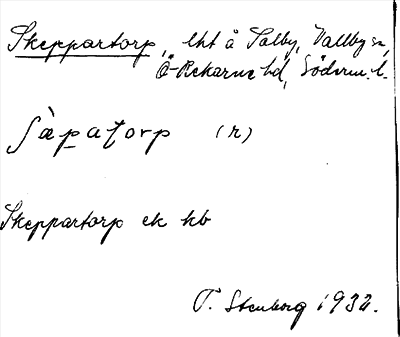 Skeppartorp, lht å Salby, Vallby sn,
Ö-Rekarne hd, Söderm. l.
ʃàpatorp (r)
Skeppartorp ek kb
P. Stenborg 1932.